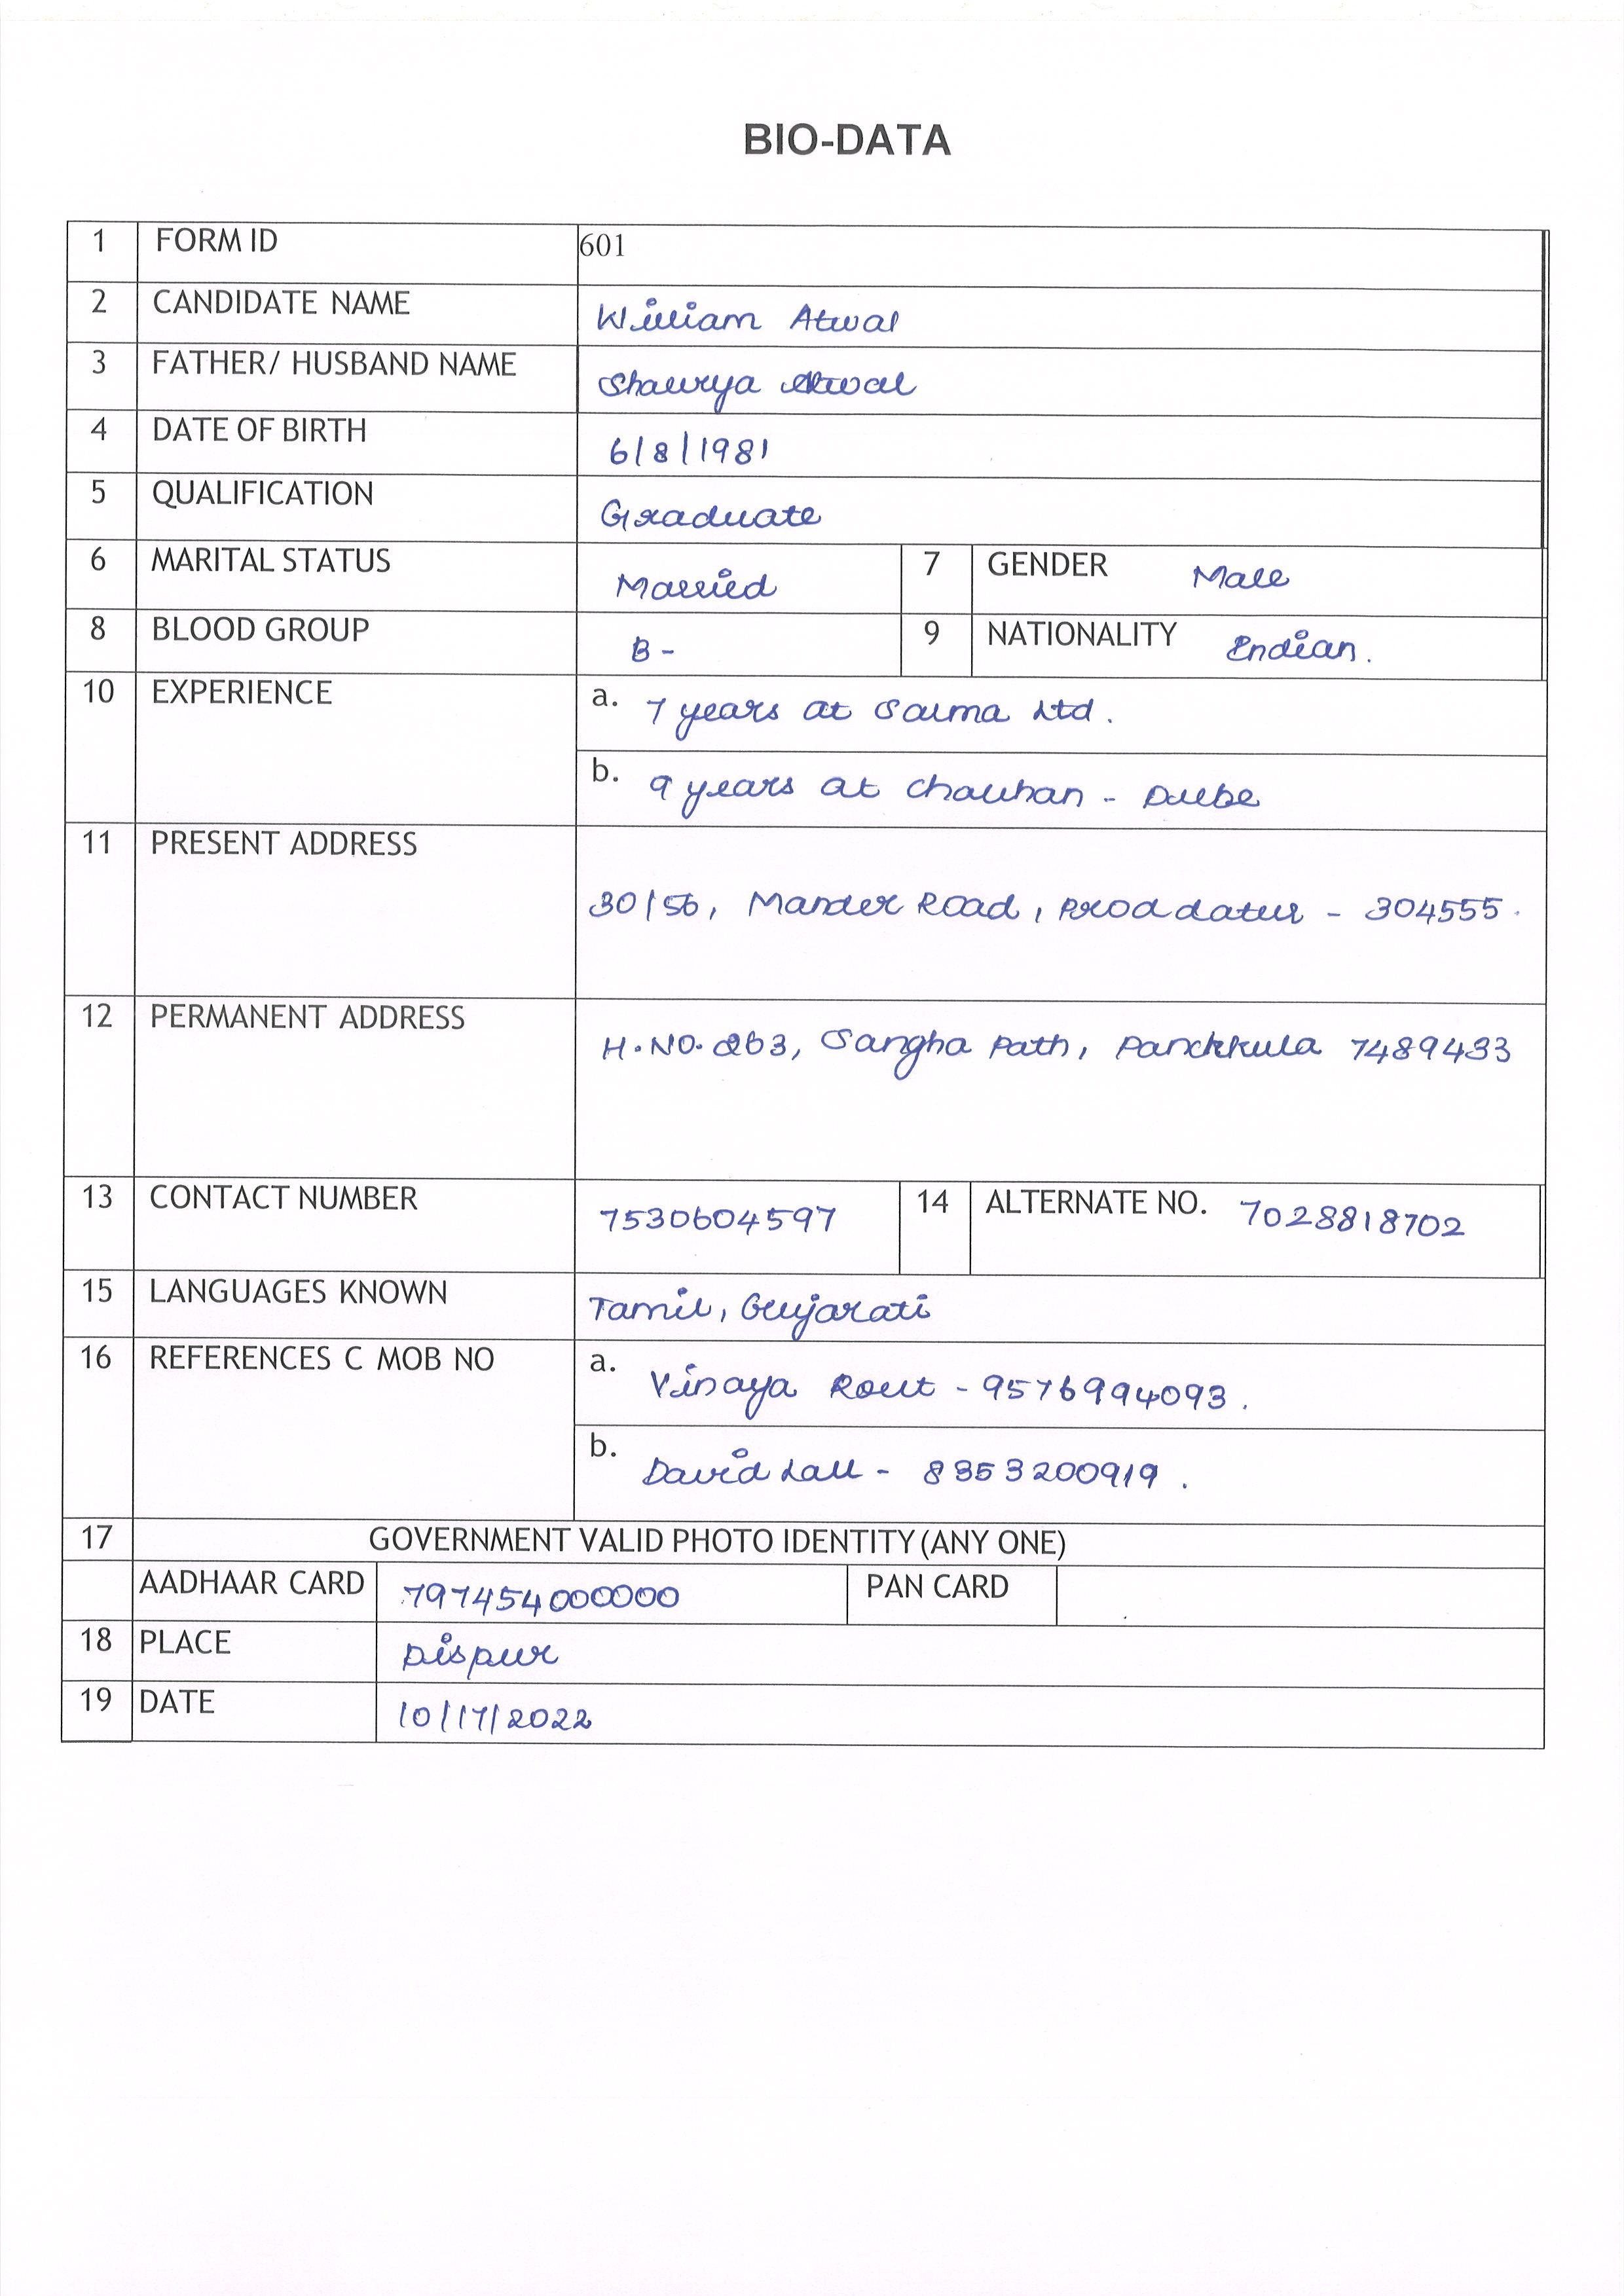 BIO-DATA
1 FORM ID 601
2 CANDIDATE NAME William Atwal
3 FATHER/ HUSBAND NAME Shaurya Atwal
4 DATE OF BIRTH 6/8/1981
5 QUALIFICATION Graduate
6 MARITAL STATUS Married 7 GENDER Male
8 BLOOD GROUP B- 9 NATIONALITY Indian.
10 EXPERIENCE a. 7 years at Salma Ltd.
b. 9 years at Chauhan - Dube
11 PRESENT ADDRESS
30/56, Mander Road, Proddatur - 304555.
12 PERMANENT ADDRESS H.NO. 263, Sangha Path, Panchkula 7489433
13 CONTACT NUMBER 7530604597 14 ALTERNATE NO. 7028818702
15 LANGUAGES KNOWN Tamil, Gujarati
16 REFERENCES C MOB NO a. Vinaya Rout - 9576994093.
b. David Lall - 8353200919.
17 GOVERNMENT VALID PHOTO IDENTITY (ANY ONE)
AADHAAR CARD 797454000000 PAN CARD
18 PLACE Dispur
19 DATE 10/17/2022